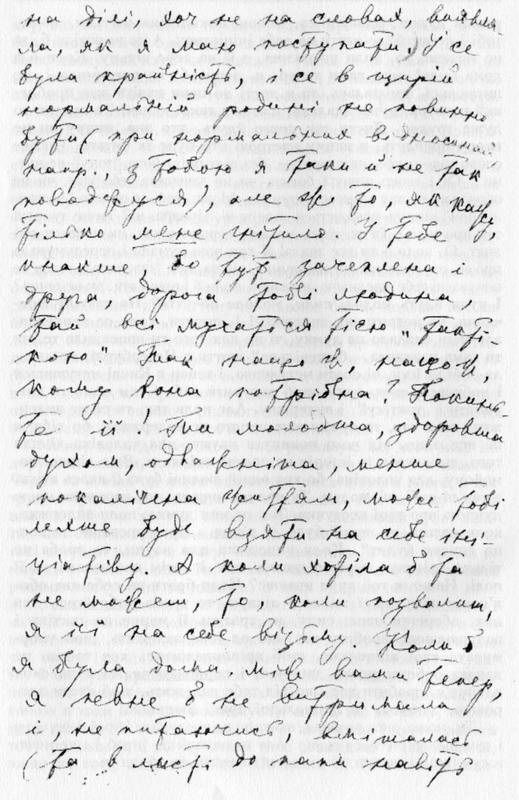 на ділі, хоч не на словах, виявля-
ла, як я маю поступати. Усе
була крайність, і се в щирій
нормальній родині не повинно
бути (при нормальних відносинах,
напр., з тобою я таки й не так
поводжуся), але ж то, як кажу,
тілько мене гнітило. У тебе
інакше, бо тут зачеплена і
друга, дорога тобі людина,
та й всі мучаться тією такти-
кою. Так нащо ж, нащо ж,
кому вона потрібна? Покинь-
те її! Ти молодша, здоровша
духом, одважніша, менше
покалічена життям, може, тобі
легше буде взяти на себе іні-
ціативу. А коли хотіла б та
не можеш, то, коли позволиш,
я на себе візьму. Коли б
я була дома, між вами тепер,
я певне б не витримала
і, не питаючись, вмішалась
та в листі до папи навіть